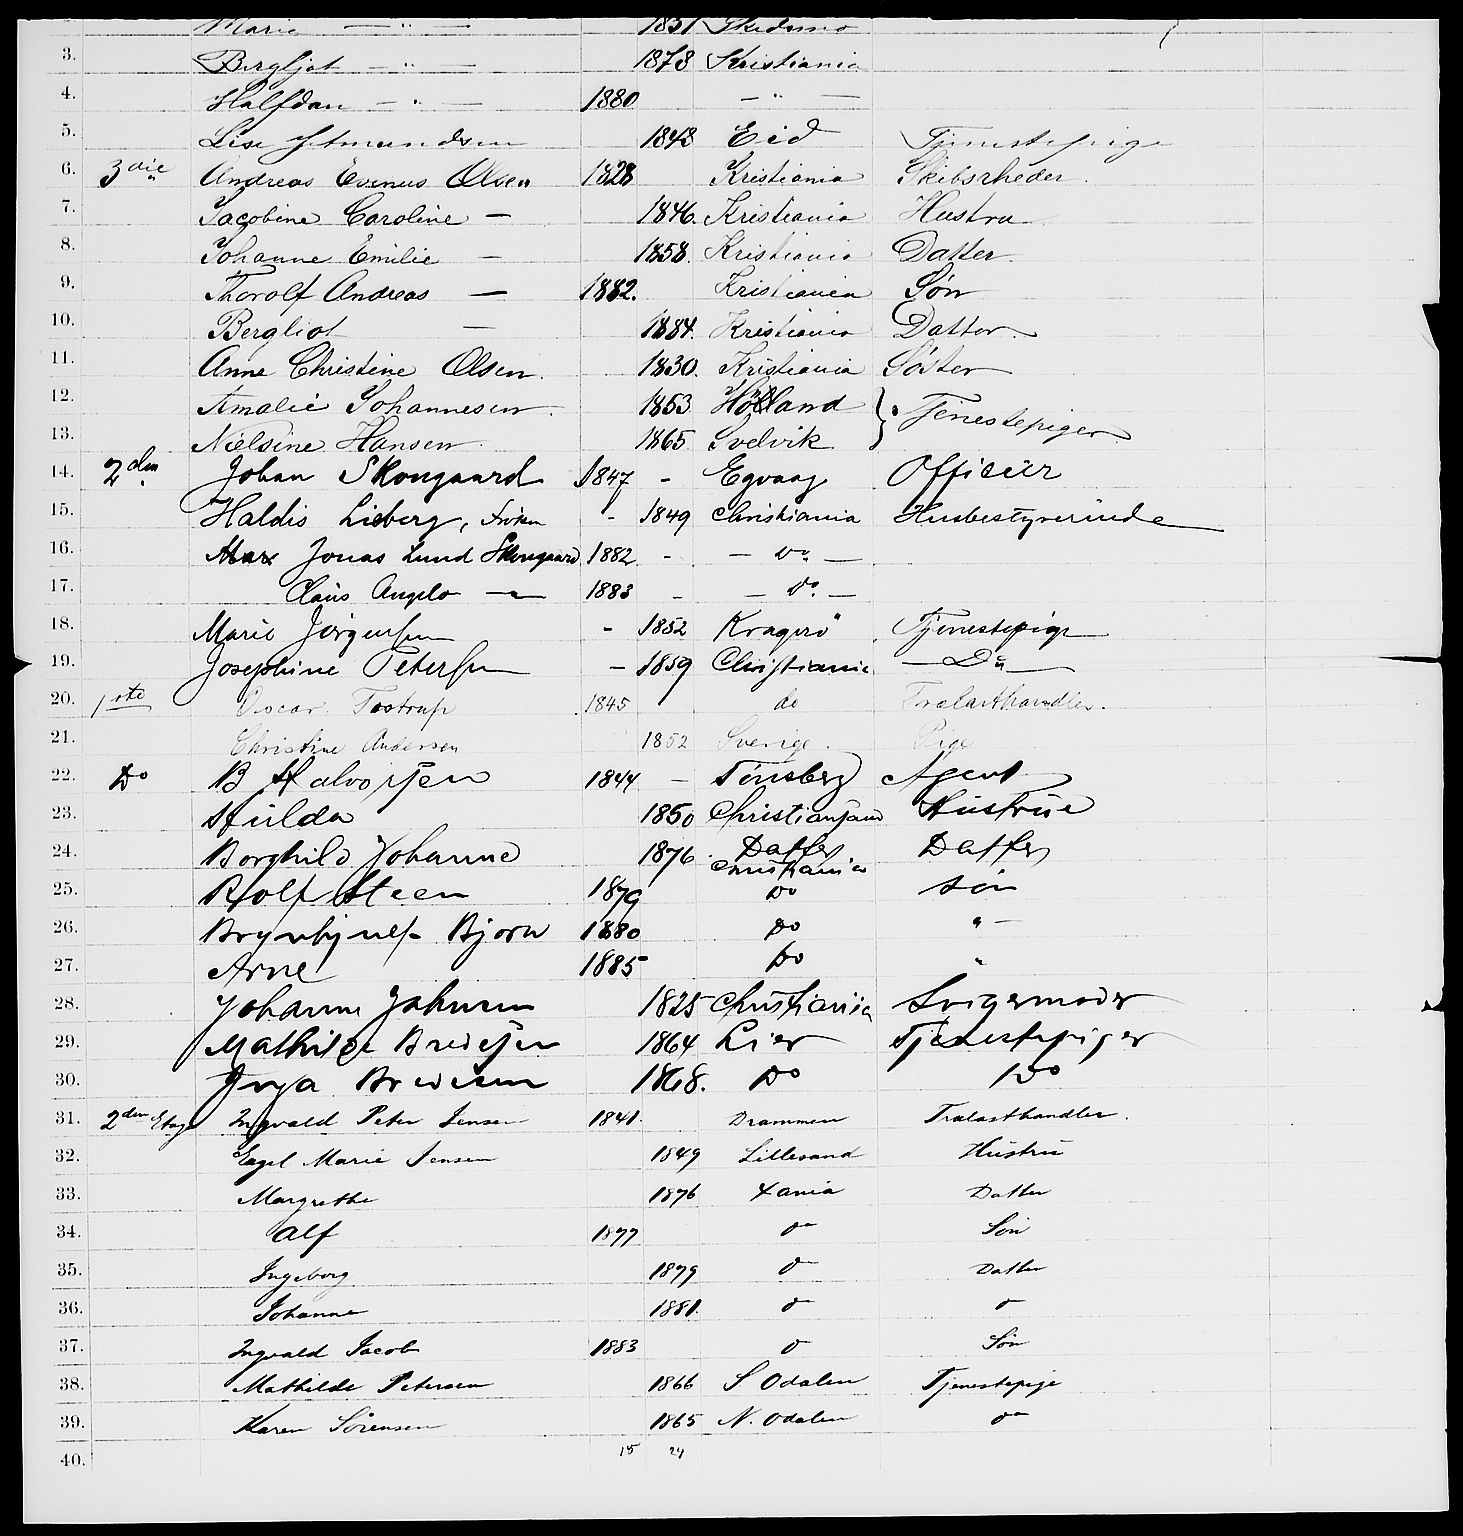 Marie — " — 1851 Skedsmo
3. Bergljot — " — 1878 Kristiania
4. Halfdan — " — 1880 — " —
5. Lise 1848 Eid Tjenestepige
6. 3die Andreas Evenus Olsen 1828 Kristiania Skibsrheder.
7. Jacobine Caroline — 1846. Kristiania Hustru
8. Johanne Emilie — 1858. Kristiania Datter.
9. Thorolf Andreas — 1882. Kristiania Søn
10. Bergliot — 1884. Kristiania Datter.
11. Anne Christine Olsen. 1830. Kristiania Søster
12. Amalie Johannesen. 1853 Høland } Tjenestepiger
13. Nielsine Hansen. 1865 Svelvik
14. 2den Johan Skougaard 1847 - Egvaag Officier
15. Haldis Lieberg, Frøken - 1849 Christiania Husbestyrerinde
16. Max Jonas Lund Skougaard 1882 - — Do —
17. Claus Angelo — 1883 - — Do —
18. Marie Jørgensen - 1852 Kragerø Tjenestepige
19. Josephine Petersen - 1859 Christiania — Do —
20. 1ste Oscar Tostrup 1845 do Trælasthandler.
21. Christine Andersen 1852 Sverige. Pige
22. Do B Halvorsen 1844 - Tønsberg Agent
23. Hulda 1850 Christiansand Hustrue
24. Borghild Johanne 1876 Datter Christiania Datter
25. Rolf Steen 1879 Do Søn
26. Bjørn 1880 Do " —
27. Arne 1885 Do "
28. Johanne Johnsen 1825 Christiania Svigermoder
29. Mathilde Bredesen 1864 Lier Tjenestepiger
30. Inga Bredesen 1868. Do Do
31. 2den Etage Ingvald Peter Jensen 1841. Drammen Trælasthandler.
32. Engel Marie Jensen 1849 Lillesand Hustru
33. Margrethe 1876 Xania Datter
34. Alf 1877 do Søn
35. Ingeborg 1879 do Datter
36. Johanne 1881. do do
37. Ingvald Jacob 1883 do Søn
38. Mathilde Petersen 1866 S Odalen Tjenestepige
39. Karen Sørensen 1865 N. Odalen do
40. 15 24